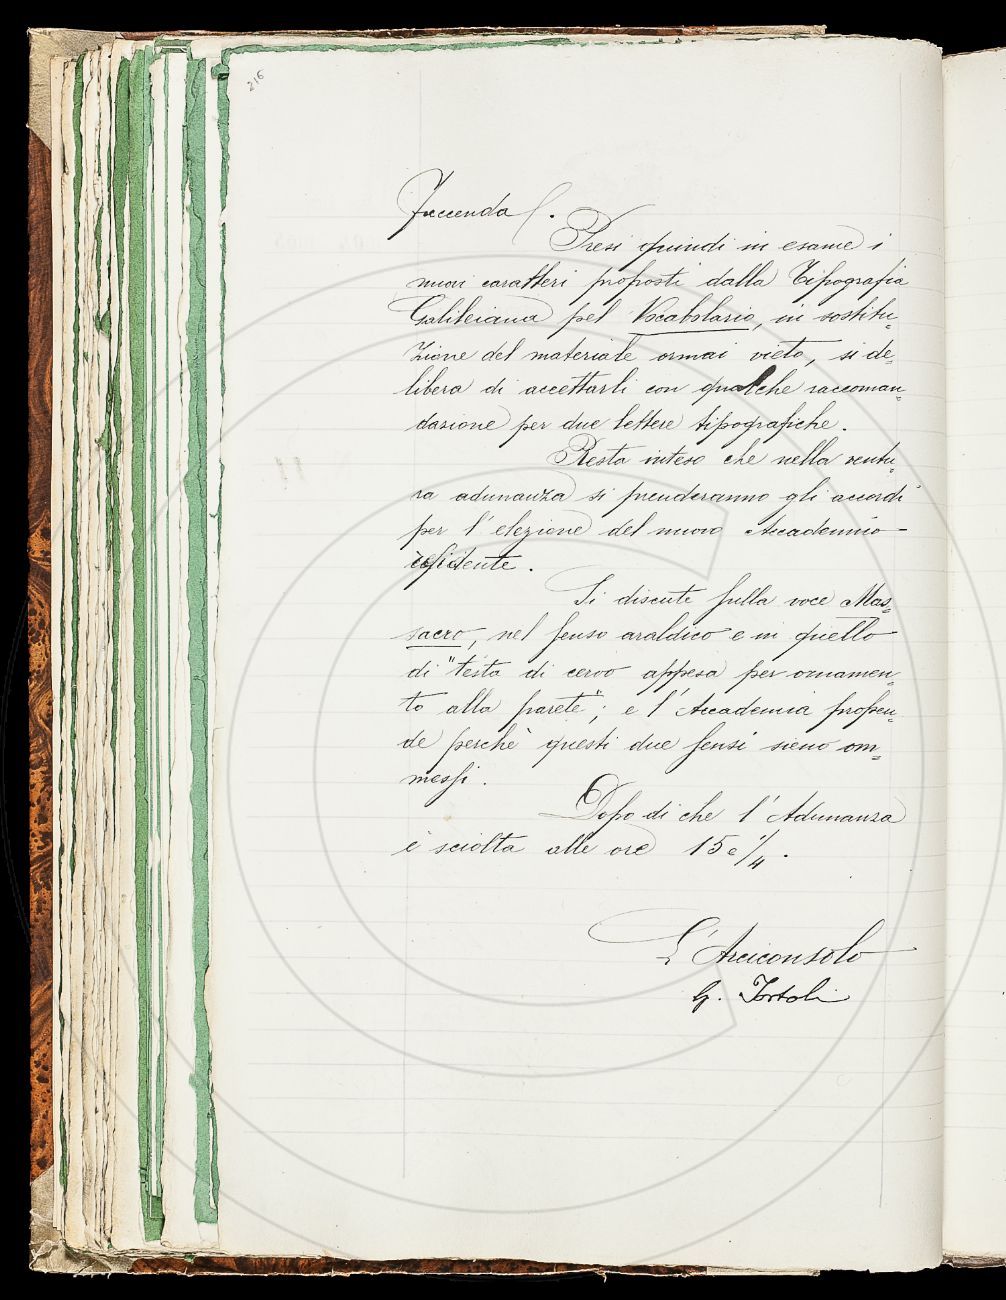 216
faccenda.
Presi quindi in esame i
nuovi caratteri proposti dalla Tipografia
Galileiana pel Vocabolario, in sostitu=
zione del materiale ormai vieto, si de=
libera di accettarli con qualche raccoman=
dazione per due lettere tipografiche.
Resta inteso che nella ventu=
ra adunanza si prenderanno gli accordi
per l'elezione del nuovo Accademico
residente.
Si discute sulla voce Mas=
sacro, nel senso araldico e in quello
di "testa di cervo appesa per ornamen=
to alla parete"; e l'Accademia propen=
de perchè questi due sensi sieno om=
messi.
Dopo di che l'Adunanza
è sciolta alle ore 15 e 1/4.
L'Arciconsolo
G. Tortoli